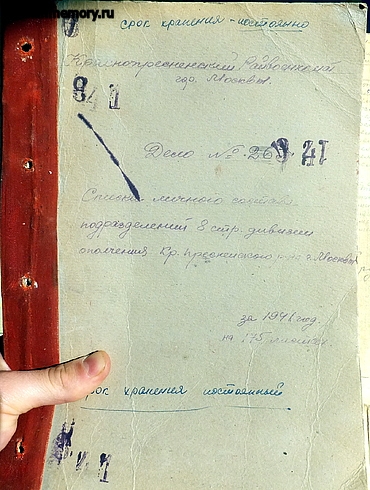 memory.ru
срок хранения - постоянно
Краснопресненский Райвоенкомат
гор. Москвы.
841
Дело № 841
Списки личного состава
подразделений 8 стр. дивизии
ополчения Кр. Пресненского р-на г. Москвы
за 1941 год.
на 175 листах.
срок хранения постоянный